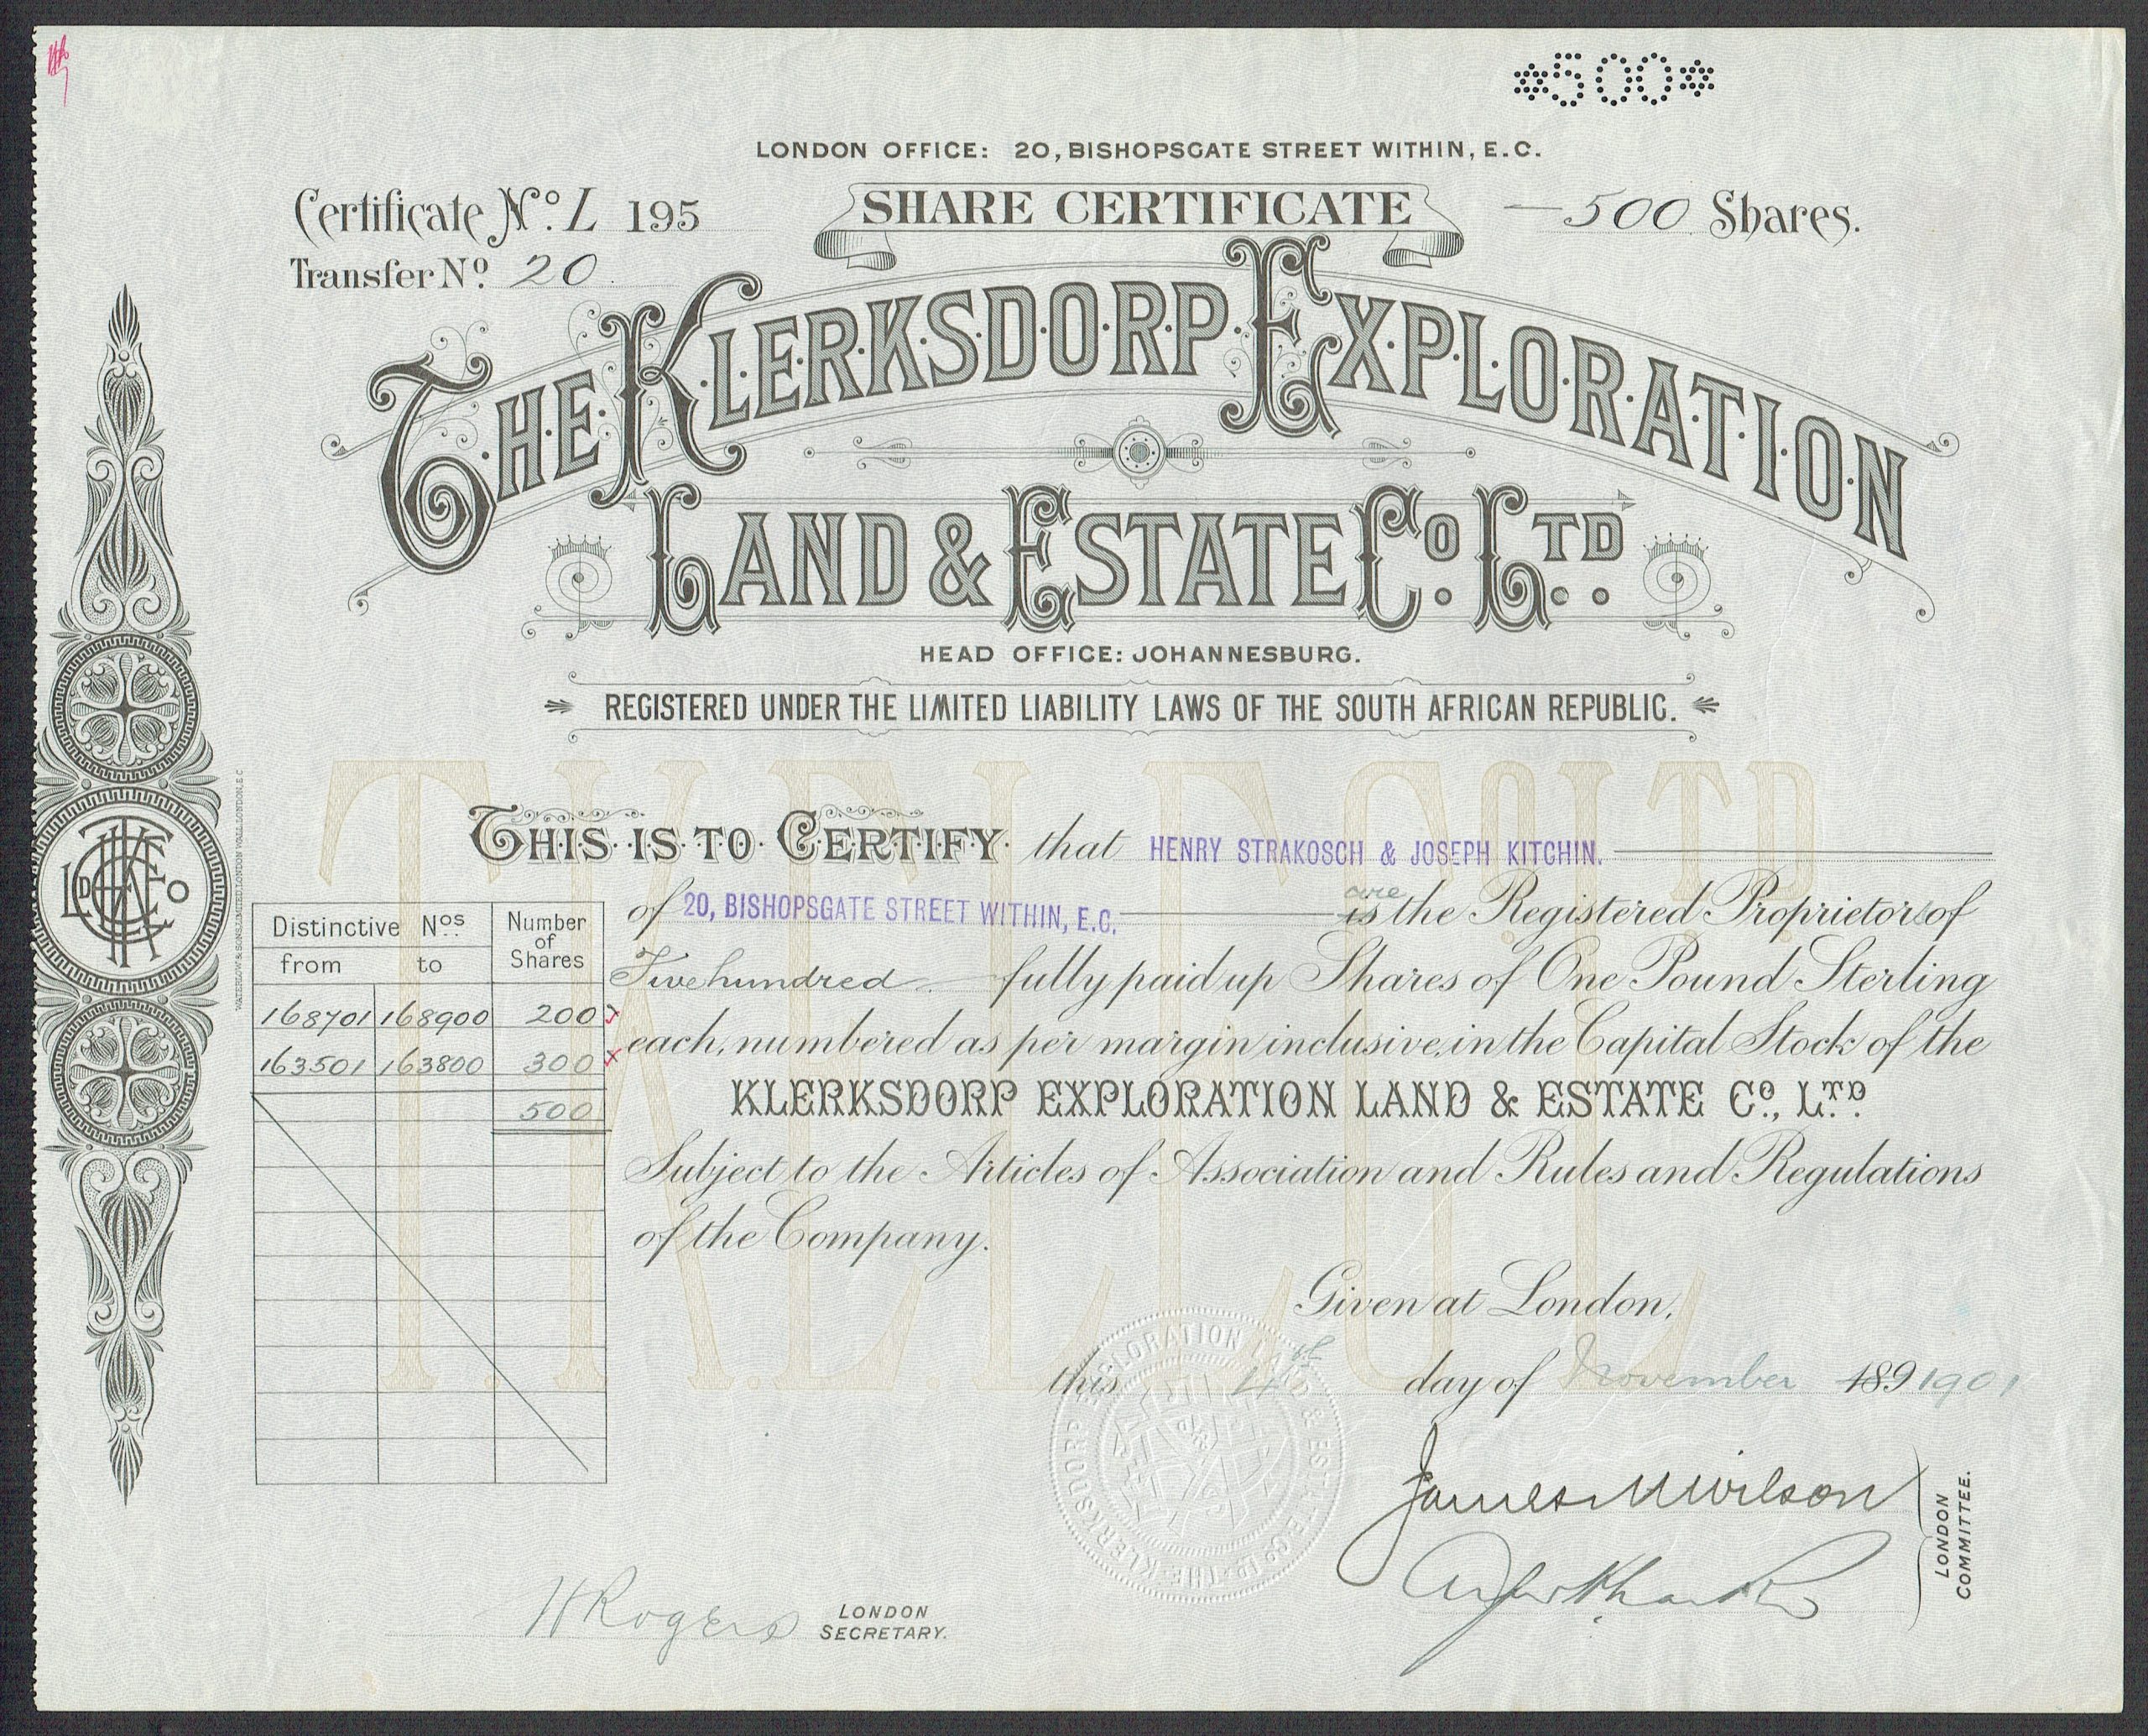 *500*
LONDON OFFICE: 20, BISHOPSGATE STREET WITHIN, E.C.
Certificate No. L 195
SHARE CERTIFICATE
500 Shares.
Transfer No. 20
THE KLERKSDORP EXPLORATION
LAND & ESTATE CO. LTD.
HEAD OFFICE: JOHANNESBURG.
REGISTERED UNDER THE LIMITED LIABILITY LAWS OF THE SOUTH AFRICAN REPUBLIC.
T.K.E.L.E. CO. LTD
THIS IS TO CERTIFY that HENRY STRAKOSCH & JOSEPH KITCHIN.
of 20, BISHOPSGATE STREET WITHIN, E.C. is are the Registered Proprietors of
Five hundred fully paid up Shares of One Pound Sterling
each, numbered as per margin inclusive, in the Capital Stock of the
KLERKSDORP EXPLORATION LAND & ESTATE CO., LTD.
Subject to the Articles of Association and Rules and Regulations
of the Company.
Distinctive Nos. Number of Shares
from to
168701 168900 200
163501 163800 300
500
WATERLOW & SONS LIMITED, LONDON WALL, LONDON, E.C
Given at London,
this 4th day of November 189 1901
THE KLERKSDORP EXPLORATION LAND & ESTATE CO LD
James M Wilson
LONDON COMMITTEE.
H Rogers LONDON SECRETARY.